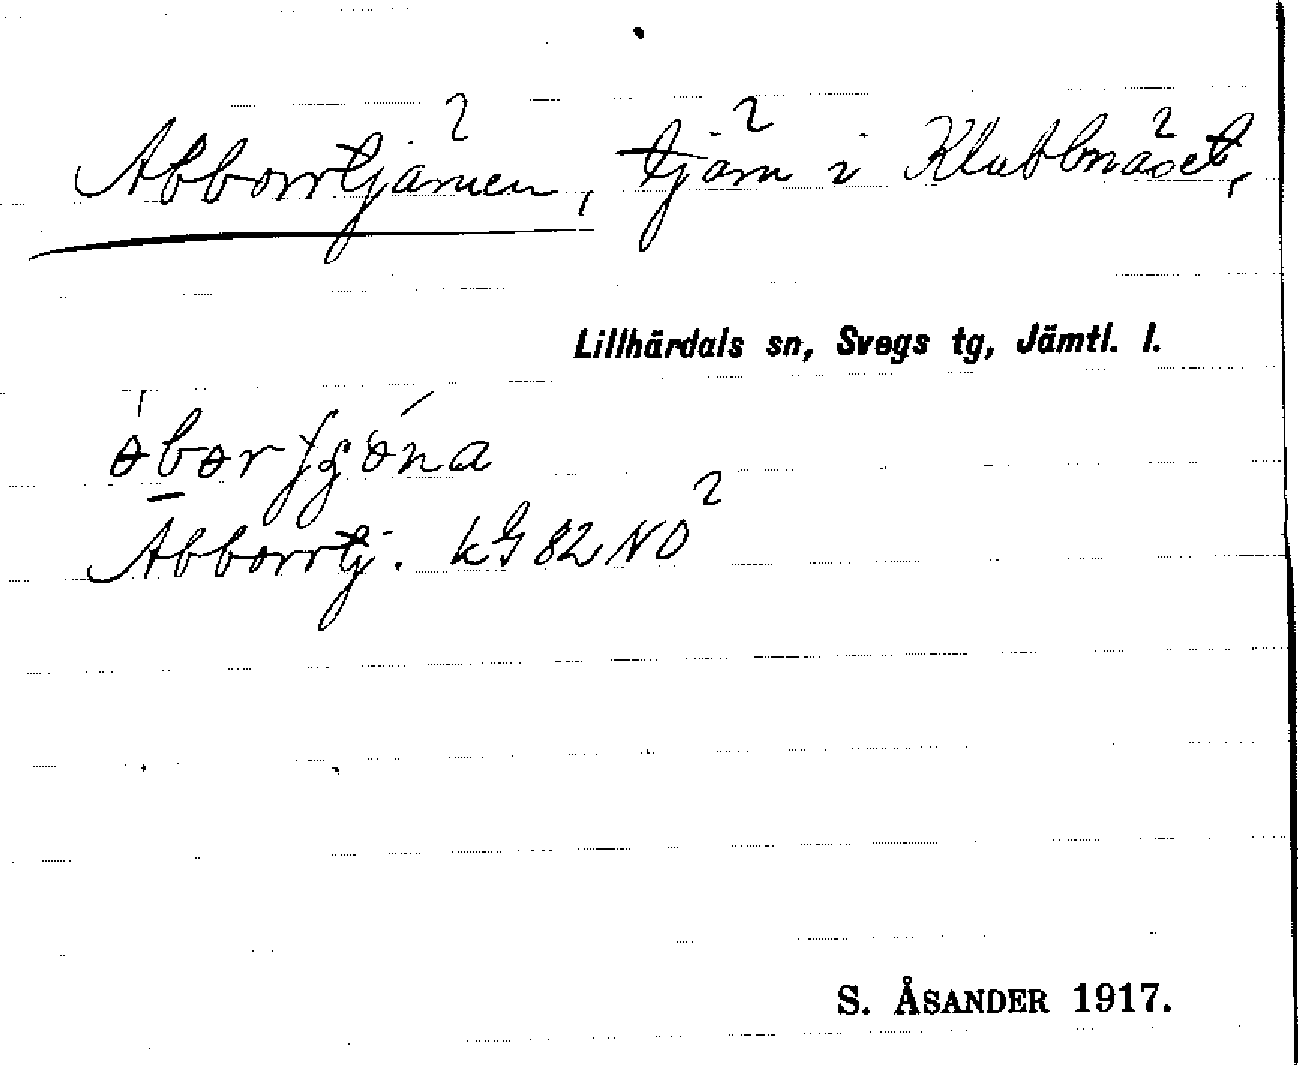 Abborrtjärnen, tjärn i Klubbnäset,
Lillhärdals sn, Svegs tg, Jämtl. l.
Abborrtj. kG 82 NO
S. ÅSANDER 1917.